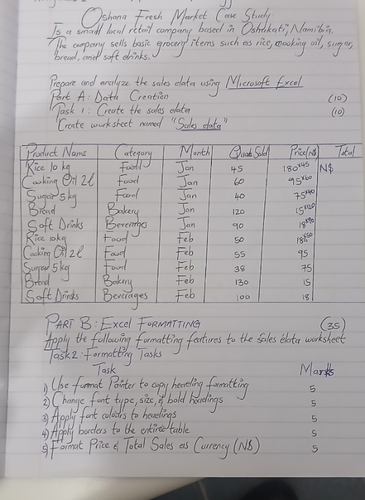 Oshana Fresh Market Case Study
Is a small local retail company based in Oshakati, Namibia.
The company sells basic grocery items such as rice, cooking oil, sugar,
bread, and soft drinks.
Prepare and analyze the sales data using Microsoft Excel
Part A: Data Creation (10)
Task 1: Create the sales data (10)
Create worksheet named "Sales data"
Product Name Category Month Quan Sold Price(N$) Total
Rice 10 kg Food Jan 45 180 N$
Cooking Oil 2l Food Jan 60 95
Sugar 5 kg Food Jan 40 75
Bread Bakery Jan 120 15
Soft Drinks Beverages Jan 90 18
Rice 10kg Food Feb 50
Cooking Oil 2l Food Feb 55 95
Sugar 5kg Food Feb 38 75
Bread Bakery Feb 130 15
Soft Drinks Beverages Feb 100 18
PART B: EXCEL FORMATTING (35)
Apply the following formatting features to the sales data worksheet
Task 2: Formatting Tasks
Task Marks
1) Use format Painter to copy heading formatting 5
2) Change font type, size, & bold headings 5
3) Apply font colours to headings 5
4) Apply borders to the entire table 5
5) Format Price & Total Sales as Currency (N$) 5